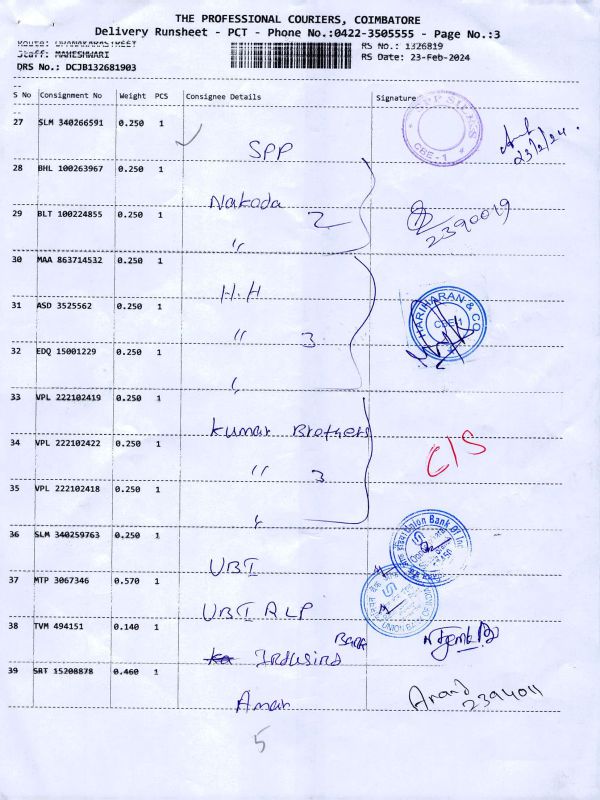 THE PROFESSIONAL COURIERS, COIMBATORE
Delivery Runsheet - PCT - Phone No.:0422-3505555 - Page No.:3
Staff: MAHESHWARI
RS No.: 1326819
DRS No.: DCJB132681903
RS Date: 23-Feb-2024
S No Consignment No Weight PCS Consignee Details Signature
27 SLM 340266591 0.250 1
SPP
CBE-1
23/2/24
28 BHL 100263967 0.250 1
Nakoda
29 BLT 100224855 0.250 1
2
2390019
"
30 MAA 863714532 0.250 1
H.H
31 ASD 3525562 0.250 1
" 3
HARIHARAN & CO
CBE-1
32 EDQ 15001229 0.250 1
"
33 VPL 222102419 0.250 1
Kumar Brothers
34 VPL 222102422 0.250 1
" 3
C/S
35 VPL 222102418 0.250 1
"
36 SLM 340259763 0.250 1
UBI
Union Bank Of
37 MTP 3067346 0.570 1
UBI RLP
UNION BANK
38 TVM 494151 0.140 1
Indusind Bank
39 SRT 15208878 0.460 1
Amar
Anand
2394011
5